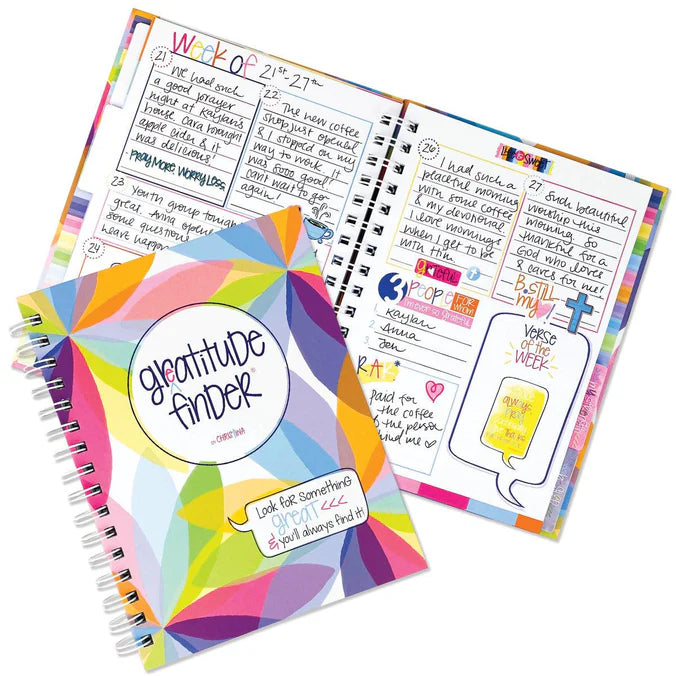 Week of 21st-27th
21
We had such
a good prayer
night at Kaylan's
house. Cara brought
apple cider & it
was delicious!
PRAY MORE. WORRY LESS
22
The new coffee
shop just opened
& I stopped on my
way to work. It
was sooo good
can't wait to go
again!
23 Youth group tonight
great. Anna opened
some questions
leave happy
24
26
I had such a
peaceful morning
with some coffee
& my devotional
I love mornings
when I get to be
with Him.
LIFE IS SWEET
27
Such beautiful
worship this
morning. So
thankful for a
God who loves
& cares for me!
grateful
3 PEOPLE FOR whom
I'm ever so grateful
1. Kaylan
2. Anna
3. Jen
B. STILL
my
VERSE
OF the
WEEK
always
paid for
the coffee
of the person
behind me
greatitude
finder®
by CHRISTINA
Look for something
great <<<
& you'll always find it!